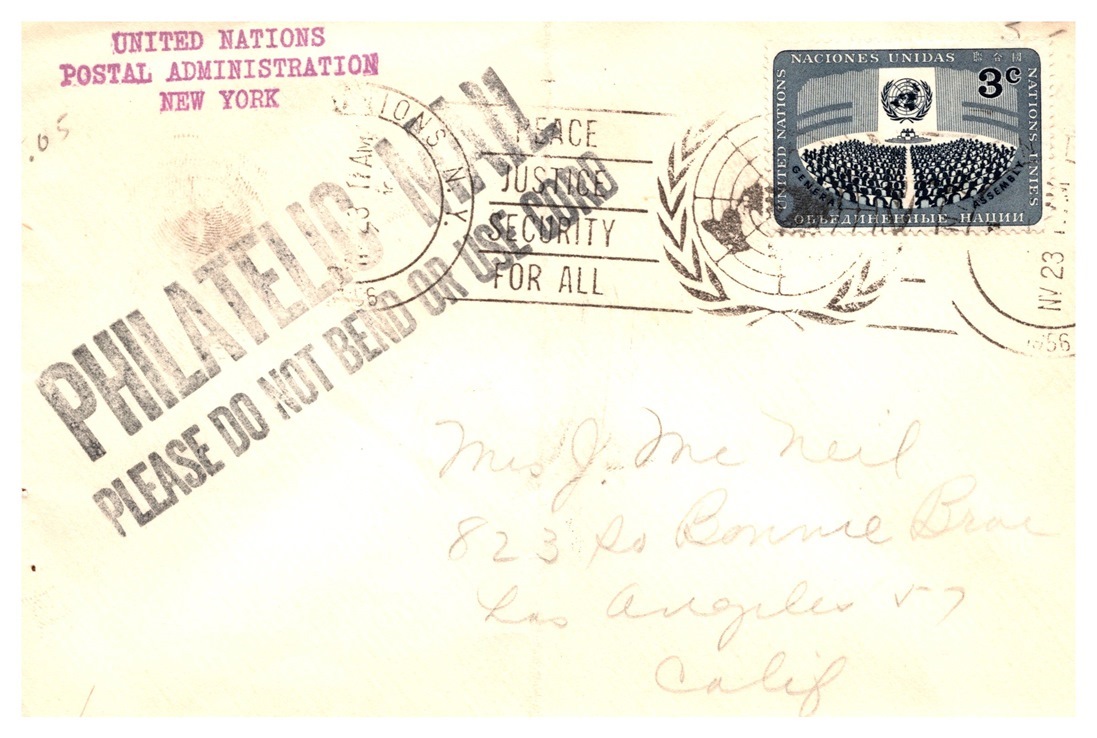 UNITED NATIONS
POSTAL ADMINISTRATION
NEW YORK
.05
PHILATELIC MAIL
PLEASE DO NOT BEND OR USE CORD
NATIONS N.Y.
11 AM
1956
PEACE
JUSTICE
SECURITY
FOR ALL
NACIONES UNIDAS
3c
UNITED NATIONS
NATIONS UNIES
GENERAL ASSEMBLY
ОБЪЕДИНЕННЫЕ НАЦИИ
NV 23
1956
Mrs J. Mc Neil
823 So Bonnie Brae
Los Angeles 57
Calif